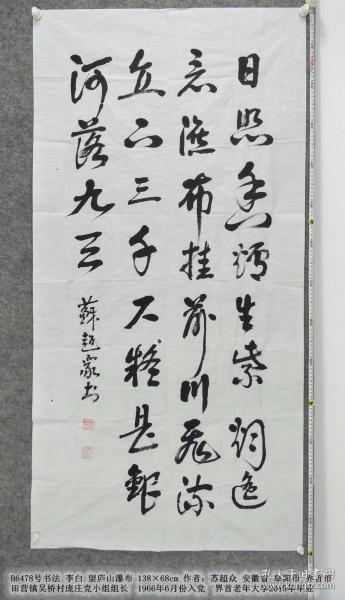 日照香炉生紫烟遥
看瀑布挂前川飞流
直下三千尺疑是銀
河落九天
蘇超众书
B6478号书法 李白 望庐山瀑布 138×68cm 作者：苏超众 安徽省 阜阳市 界首市
田营镇吴桥村庞庄党小组组长 1966年6月份入党 界首老年大学2016年毕业